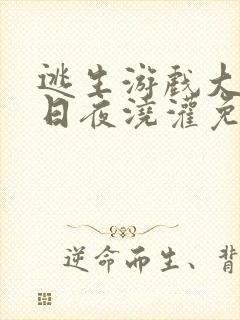 逃生游戏大
日夜浇灌免
逆命而生、背